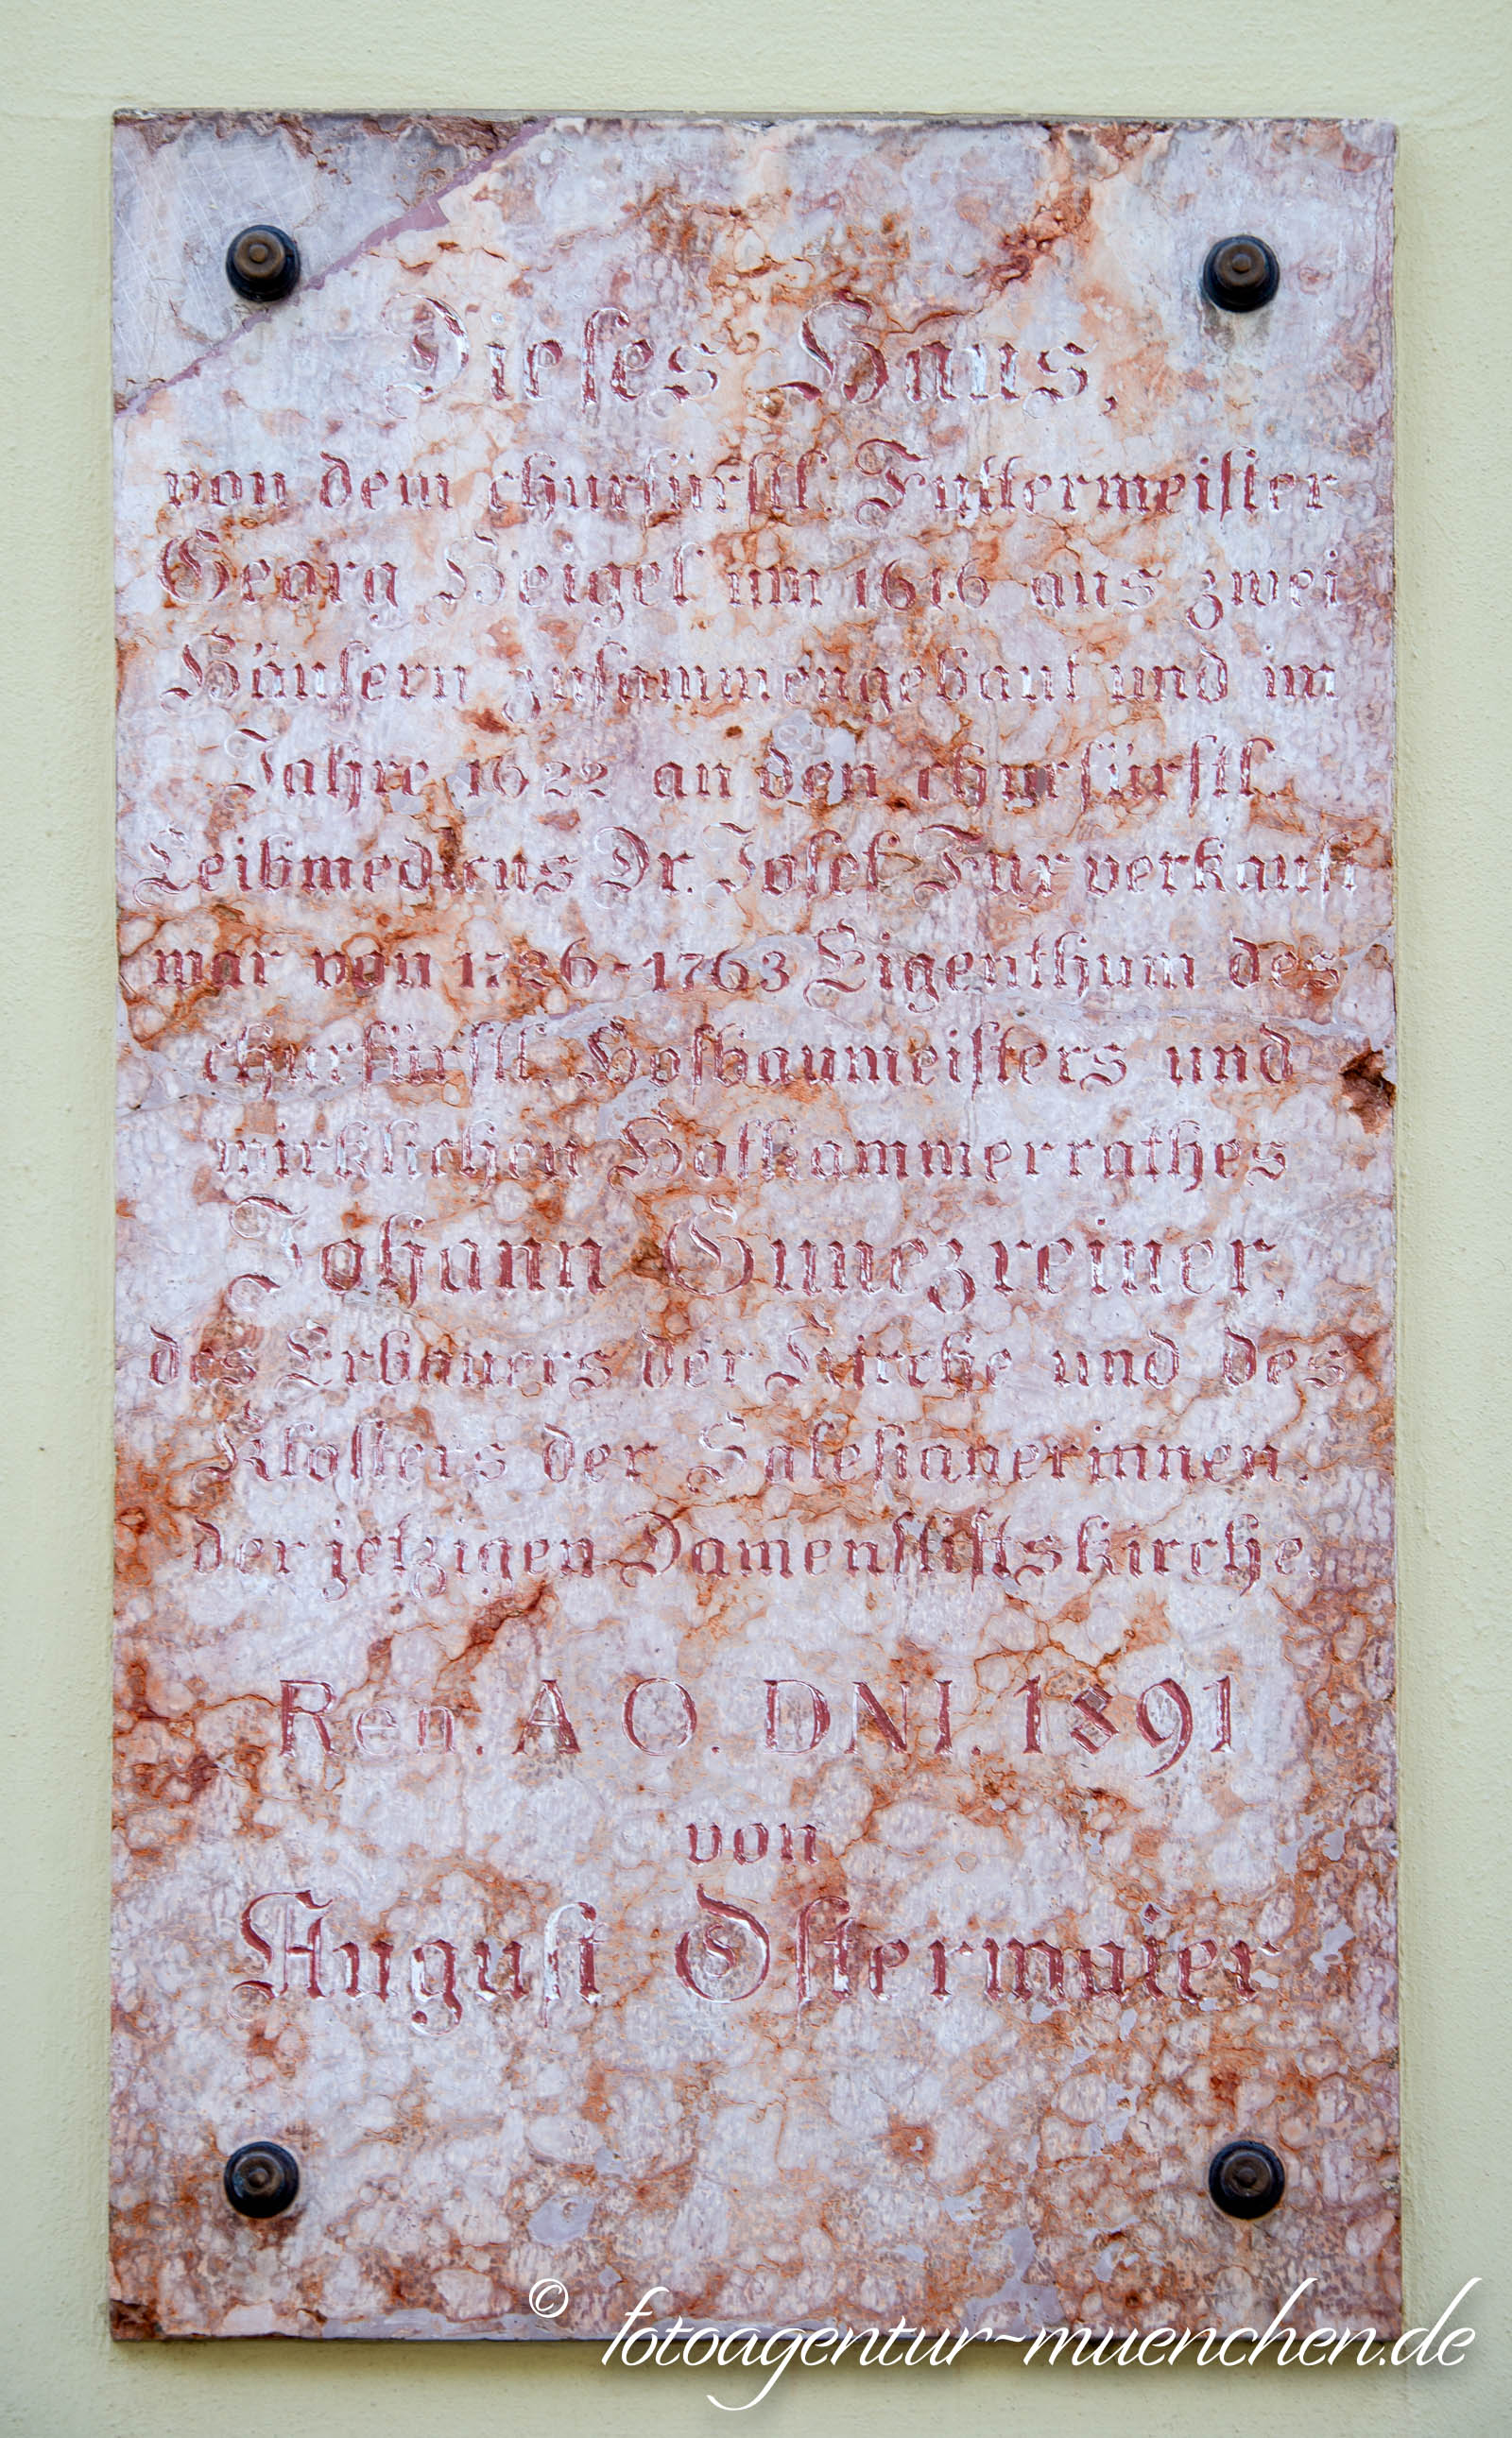 Dieses Haus,
von dem churfürstl. Futtermeister
Georg Heigel um 1616 aus zwei
Häusern zusammengebaut und im
Jahre 1622 an den churfürstl.
Leibmedicus Dr. Josef Fux verkauft
war von 1726-1763 Eigenthum des
churfürstl. Hofbaumeisters und
wirklichen Hofkammerrathes
Johann Gunezreiner,
des Erbauers der Kirche und des
Klosters der Salesianerinnen,
der jetzigen Damenstiftskirche.
Ren. A O. DNI. 1891
von
August Ostermaier
© fotoagentur-muenchen.de